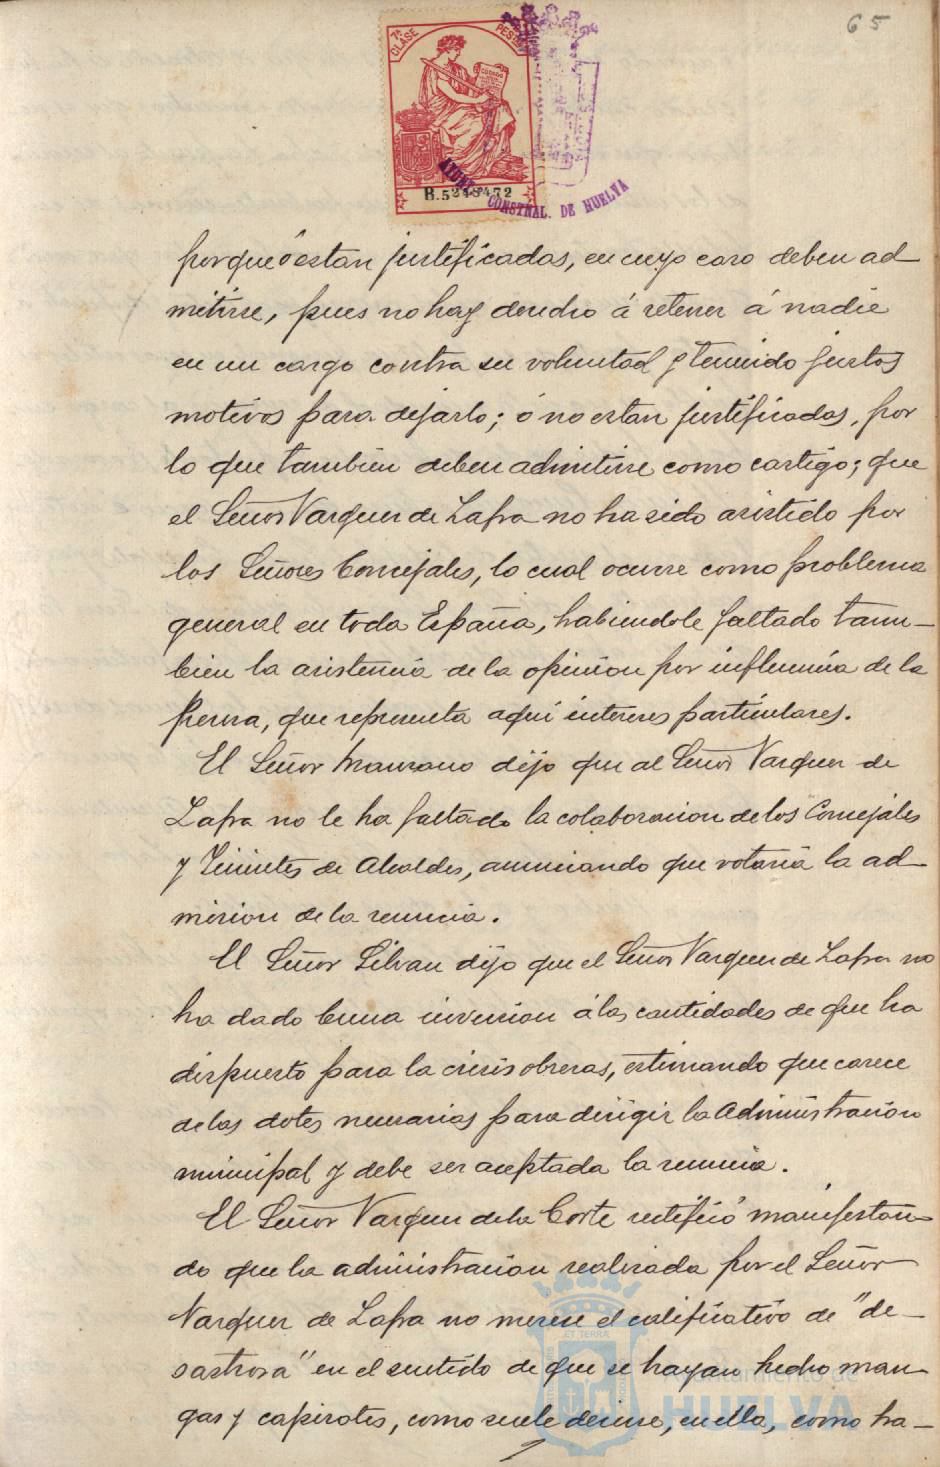 65
7ª CLASE
B.5248472
CONSTNAL. DE HUELVA
porque ó estan justificadas, en cuyo caso deben ad-
mitirse, pues no hay derecho á retener á nadie
en un cargo contra su voluntad y teniendo justos
motivos para dejarlo; ó no estan justificadas, por
lo que tambien deben admitirse como castigo; que
el Señor Vazquez de Zafra no ha sido asistido por
los Señores Concejales, lo cual ocurre como problema
general en toda España, habiendole faltado tam-
bien la asistencia de la opinion por influencia de la
Prensa, que representa aquí intereses particulares.
El Señor Manzano dijo que al Señor Vazquez de
Zafra no le ha faltado la colaboracion de los Concejales
y Tenientes de Alcaldes, anunciando que votaría la ad-
mision de la renuncia.
El Señor Silvan dijo que el Señor Vazquez de Zafra no
ha dado buena inversion á las cantidades de que ha
dispuesto para la crisis obreras, estimando que carece
de las dotes necesarias para dirigir la Administracion
municipal y debe ser aceptada la renuncia.
El Señor Vazquez de la Corte rectificó manifestan-
do que la administracion realizada por el Señor
Vazquez de Zafra no merece el calificativo de "de-
sastrosa" en el sentido de que se hayan hecho man-
gas y capirotes, como suele decirse, en ella, como ha-
Ayuntamiento de
HUELVA